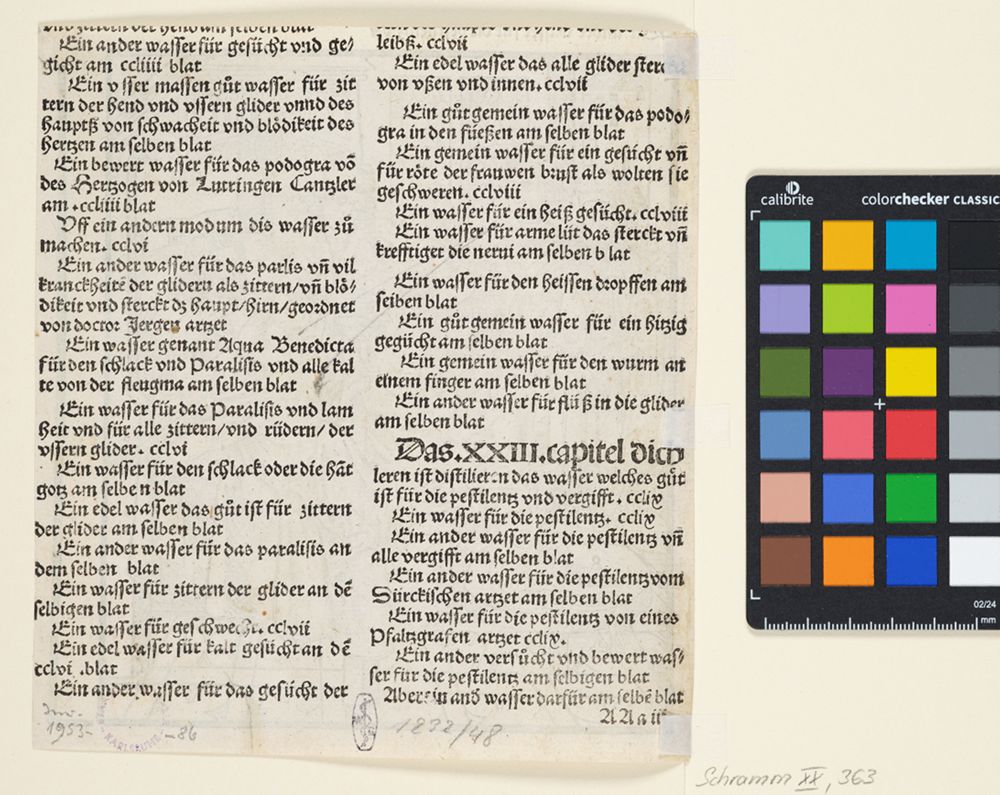 Ein ander wasser für gesücht vnd ge⸗
gicht am ccliiii blat
Ein v sser massen gůt wasser für zit
tern der hend vnd vssern glider vnnd des
hauptß von schwacheit vnd blödikeit des
hertzen am selben blat
Ein bewert wasser für das podogra vō
des Hertzogen von Lutringen Cantzler
am .ccliiii blat
Vff ein andern mod um dis wasser zů
machen. cclvi
Ein ander wasser für das parlis vñ vil
kranckheitē der glidern als zittern/vñ blö⸗
dikeit vnd sterckt dz haupt/hirn/geordnet
von doctor Jergen artzet
Ein wasser genant Aqua Benedicta
für den schlack vnd Paralisis vnd alle kal
te von der fleugma am selben blat
Ein wasser für das Paralisis vnd lam
heit vnd für alle zittern/vnd rüdern/ der
vssern glider. cclvi
Ein wasser für den schlack oder die hāt
gotz am selbe n blat
Ein edel wasser das gůt ist für zittern
der glider am selben blat
Ein ander wasser für das paralisis an
dem selben blat
Ein wasser für zittern der glider an dē
selbigen blat
Ein wasser für geschwecht. cclvii
Ein edel wasser für kalt gesücht an dē
cclvi .blat
Ein ander wasser für das gesücht der
leibß. cclvii
Ein edel wasser das alle glider sterc
von vßen vnd innen. cclvii
Ein gůt gemein wasser für das podo⸗
gra in den füeßen am selben blat
Ein gemein wasser für ein gesücht vñ
für röte der frauwen brust als wolten sie
geschweren. cclviii
Ein wasser für ein heiß gesücht. cclviii
Ein wasser für arme lüt das sterckt vñ
krefftiget die nerui am selben b lat
Ein wasser für den heissen dropffen am
selben blat
Ein gůt gemein wasser für ein hitzig
gegücht am selben blat
Ein gemein wasser für den wurm an
einem finger am selben blat
Ein ander wasser für flüß in die glider
am selben blat
Das.XXIII.capitel dicv
leren ist distilieren das wasser welches gůt
ist für die pestilentz vnd vergifft. cclix
Ein wasser für die pestilentz. cclix
Ein ander wasser für die pestilentz vñ
alle vergifft am selben blat
Ein ander wasser für die pestilentz vom
Türckischen artzet am selben blat
Ein wasser für die pestilentz von eines
Pfaltzgrafen artzet cclix.
Ein ander versůcht vnd bewert was⸗
ser für die pestilentz am selbigen blat
Aber ein and wasser darfür am selbē blat
AA a ii
Inv.
1953- -86
KARLSRUHE
1832/48
Schramm XX, 363
calibrite
colorchecker CLASSIC
02/24
mm